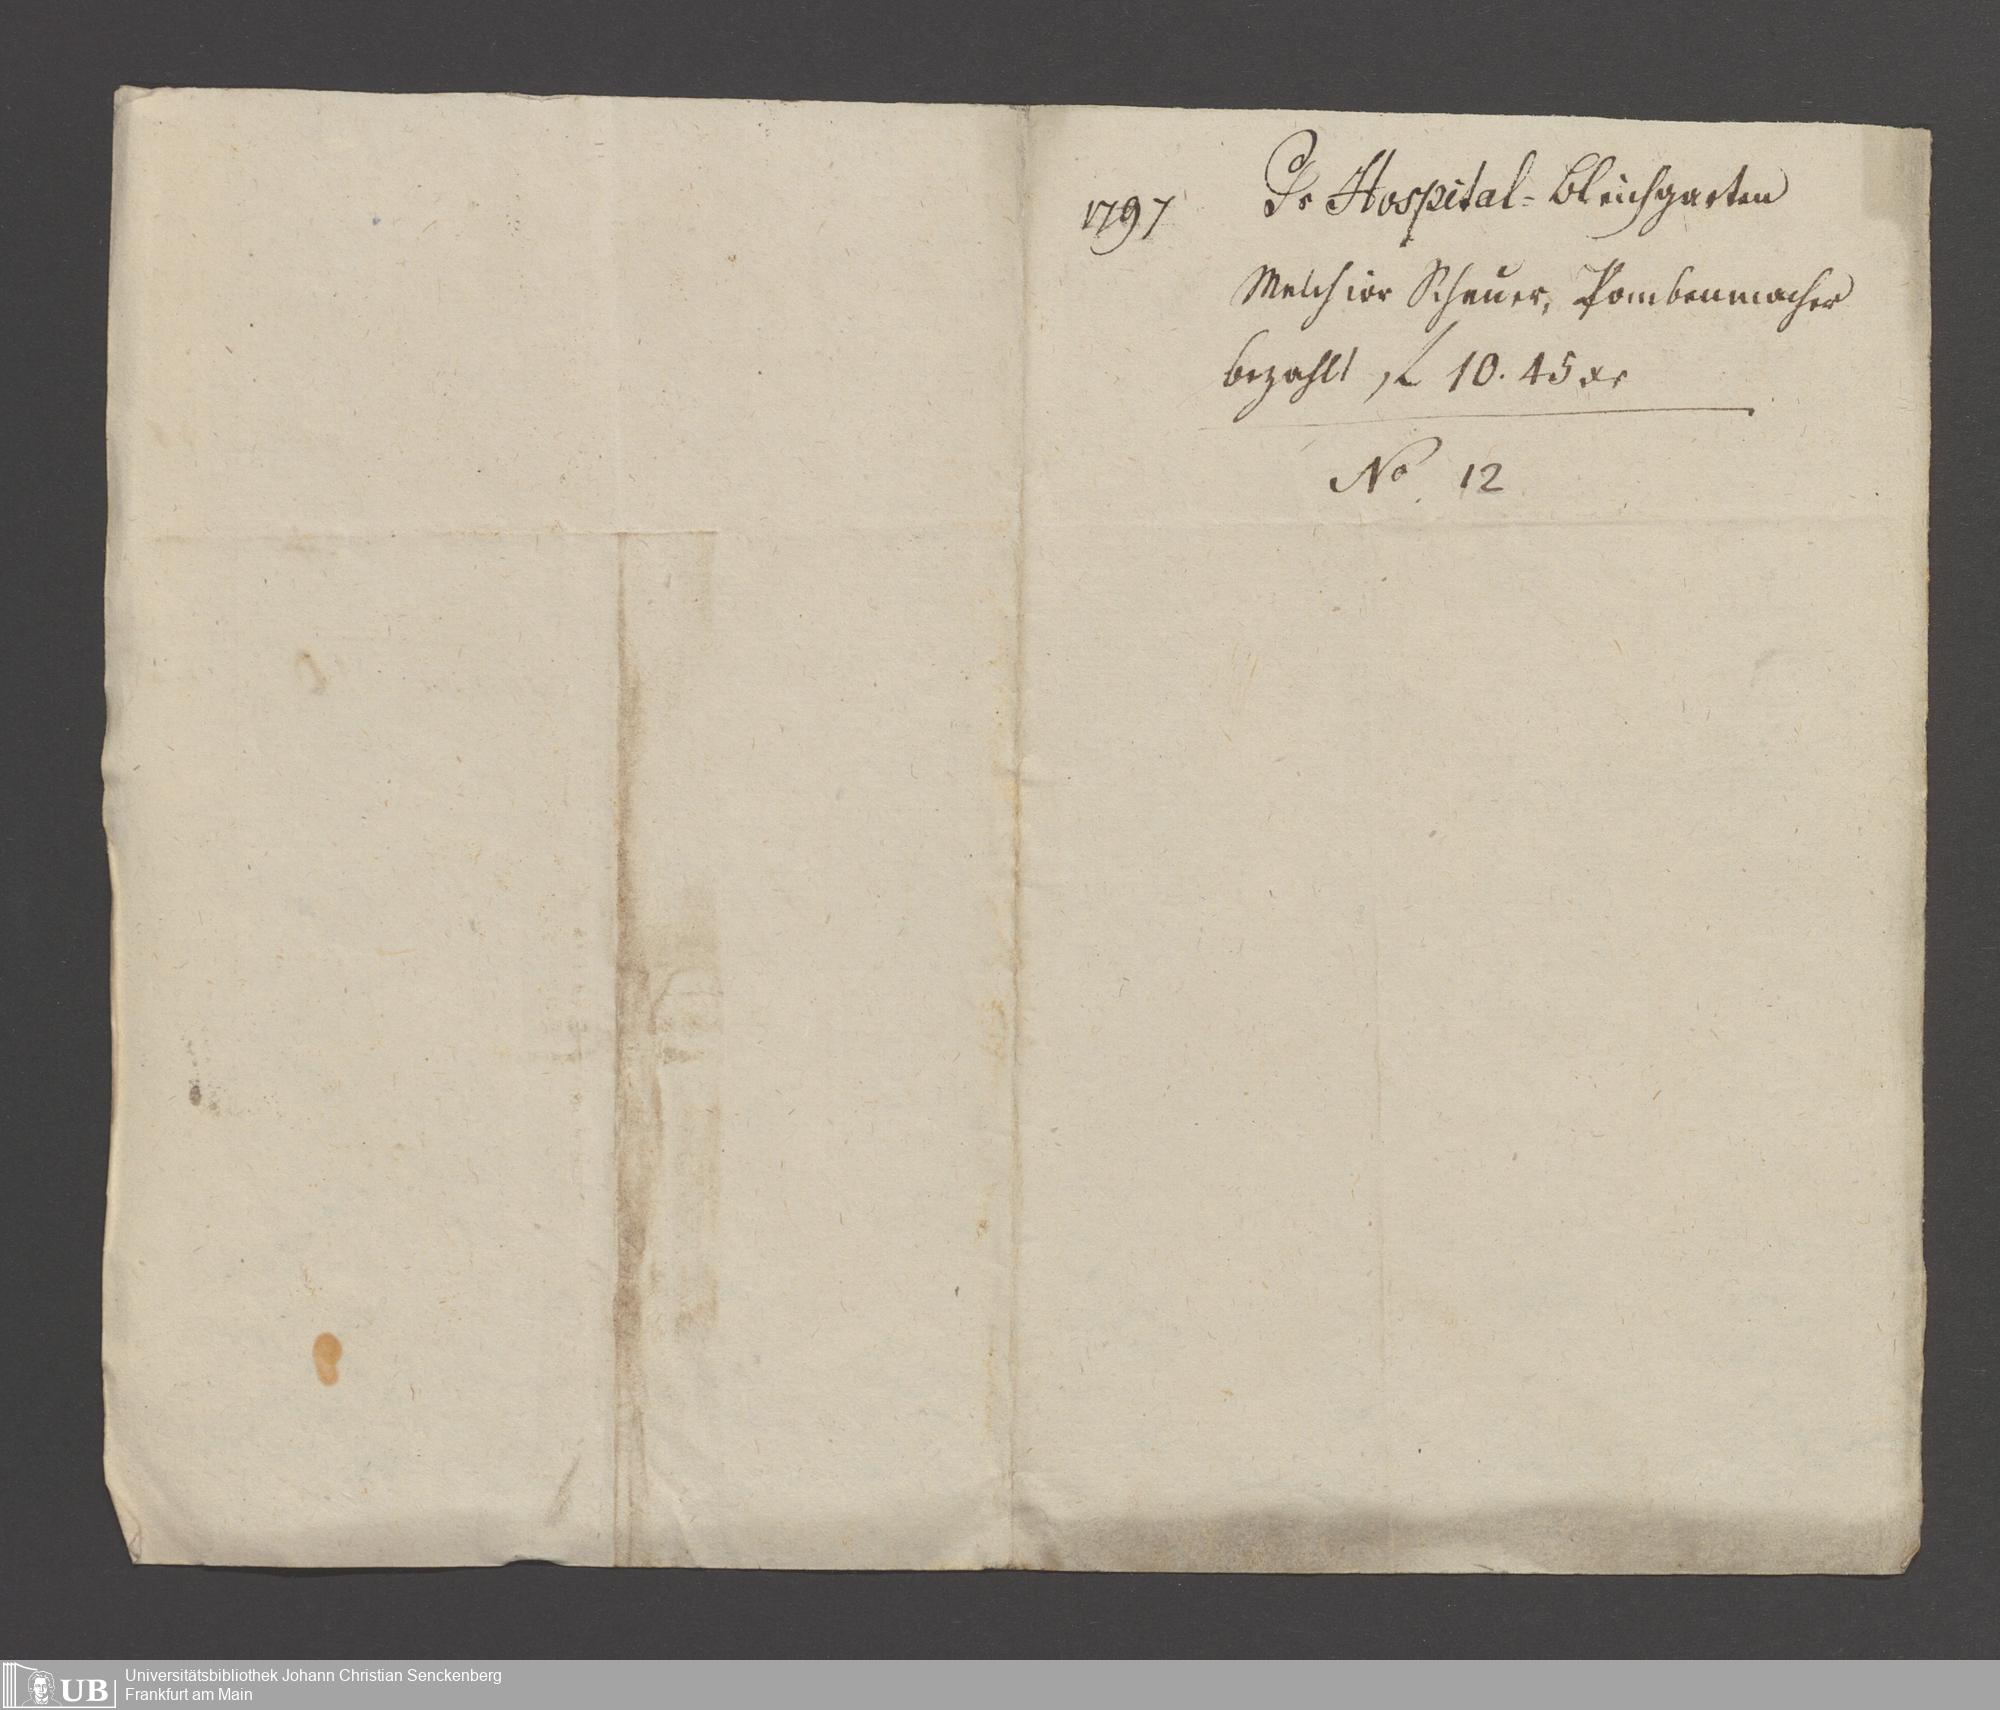 1797 Pr Hospital-Bleichgarten
Melchior Scheuer, Pombenmacher
bezahlt f 10. 45 xr
No 12
UB
Universitätsbibliothek Johann Christian Senckenberg
Frankfurt am Main